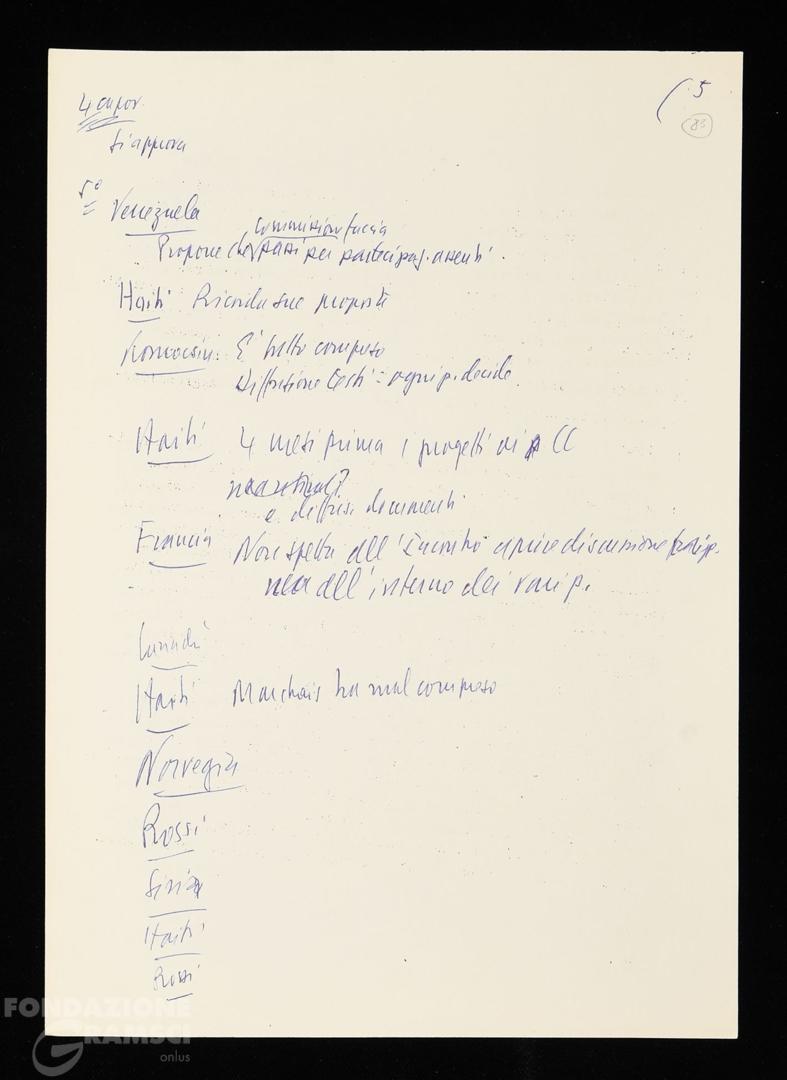 ( 5
83
4 capov.
Si approva
5°
Venezuela
commissione faccia
Propone che passi per partecipaz. assenti.
Haiti Ricorda sue proposte
È tutto compreso
Diffusione testi = ogni p. decide
Haiti 4 mesi prima i progetti ai CC
e diffusi documenti
Francia Non spetta all'Incontro aprire discussione
all'interno dei vari p.
Canadà
Haiti Marchais ha mal compreso
Norvegia
Rossi
Siria
Haiti
Rossi
FONDAZIONE
GRAMSCI
onlus